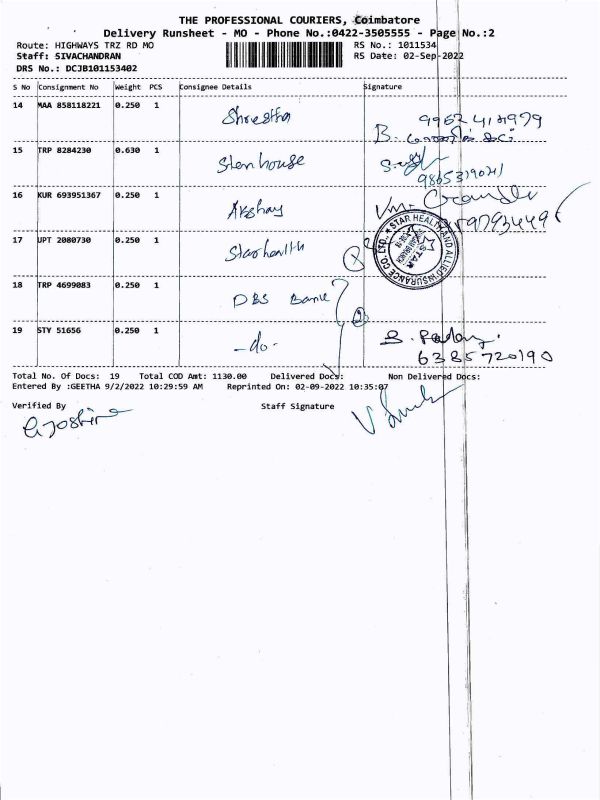 THE PROFESSIONAL COURIERS, Coimbatore
Delivery Runsheet - MO - Phone No.:0422-3505555 - Page No.:2
Route: HIGHWAYS TRZ RD MO RS No.: 1011534
Staff: SIVACHANDRAN RS Date: 02-Sep-2022
DRS No.: DCJB101153402
S No Consignment No Weight PCS Consignee Details Signature
14 MAA 858118221 0.250 1 Shrestha
B.
15 TRP 8284230 0.630 1 Sten house
16 KUR 693951367 0.250 1 Akshay
17 UPT 2080730 0.250 1 Starhealth
STAR HEALTH AND ALLIED INSURANCE CO. LTD.,
STAR
18 TRP 4699083 0.250 1 DBS Bank
2
19 STY 51656 0.250 1 -do-
6385720190
Total No. Of Docs: 19 Total COD Amt: 1130.00 Delivered Docs: Non Delivered Docs:
Entered By :GEETHA 9/2/2022 10:29:59 AM Reprinted On: 02-09-2022 10:35:07
Verified By Staff Signature